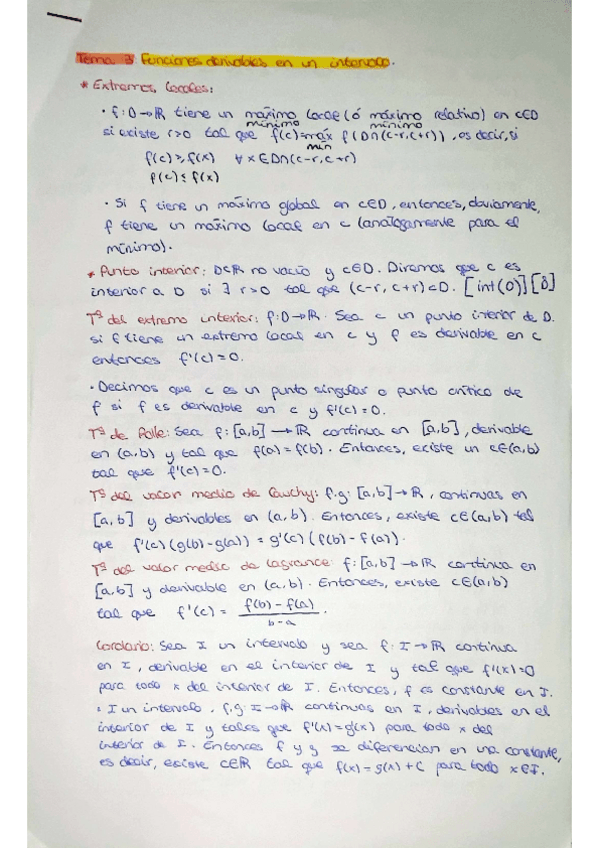 Tema 3 Funciones derivables en un intervalo.
* Extremos locales:
· f: D→ℝ tiene un máximo local (ó máximo relativo) en c∈D
mínimo mínimo
si existe r>0 tal que f(c)=máx f(D∩(c-r,c+r)), es decir, si
mín
f(c)≥f(x) ∀x∈D∩(c-r,c+r)
f(c)≤f(x)
· Si f tiene un máximo global en c∈D, entonces, obviamente,
f tiene un máximo local en c (análogamente para el
mínimo).
* Punto interior: D⊂ℝ no vacío y c∈D. Diremos que c es
interior a D si ∃ r>0 tal que (c-r, c+r)⊂D. [int(D)] [D̊]
Tª del extremo interior: f: D→ℝ. Sea c un punto interior de D.
si f tiene un extremo local en c y f es derivable en c
entonces f'(c)=0.
· Decimos que c es un punto singular o punto crítico de
f si f es derivable en c y f'(c)=0.
Tª de Rolle: Sea f: [a,b]→ℝ continua en [a,b], derivable
en (a,b) y tal que f(a)=f(b). Entonces, existe un c∈(a,b)
tal que f'(c)=0.
Tª del valor medio de Cauchy: f,g: [a,b]→ℝ, continuas en
[a,b] y derivables en (a,b). Entonces, existe c∈(a,b) tal
que f'(c)(g(b)-g(a)) = g'(c)(f(b)-f(a)).
Tª del valor medio de Lagrange: f: [a,b]→ℝ continua en
[a,b] y derivable en (a,b). Entonces, existe c∈(a,b)
tal que f'(c) = f(b)-f(a) / b-a.
Corolario: Sea I un intervalo y sea f: I→ℝ continua
en I, derivable en el interior de I y tal que f'(x)=0
para todo x del interior de I. Entonces, f es constante en I.
· I un intervalo, f,g: I→ℝ continuas en I, derivables en el
interior de I y tales que f'(x)=g'(x) para todo x del
interior de I. Entonces f y g se diferencian en una constante,
es decir, existe C∈ℝ tal que f(x)=g(x)+C para todo x∈I.